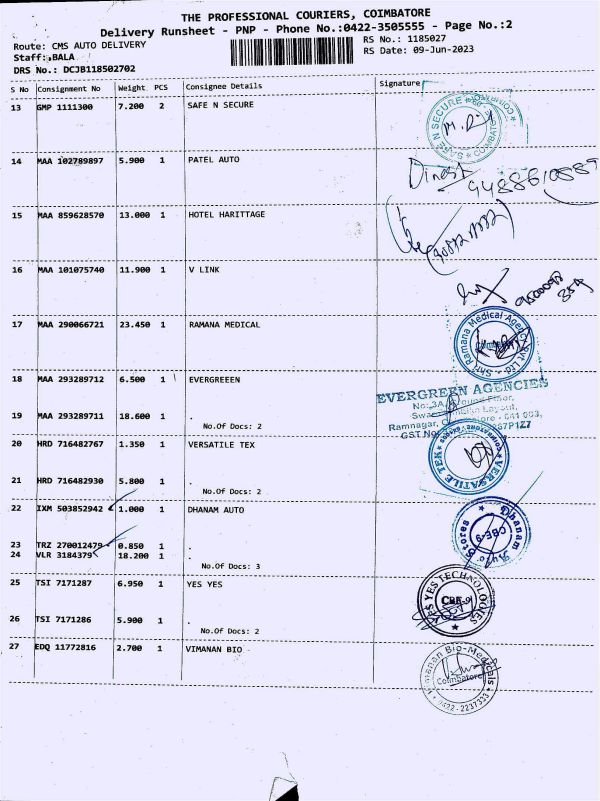 THE PROFESSIONAL COURIERS, COIMBATORE
Delivery Runsheet - PNP - Phone No.:0422-3505555 - Page No.:2
Route: CMS AUTO DELIVERY
RS No.: 1185027
Staff: BALA
RS Date: 09-Jun-2023
DRS No.: DCJB118502702
S No Consignment No Weight PCS Consignee Details Signature
13 GMP 1111300 7.200 2 SAFE N SECURE
SAFE N SECURE COIMBATORE
14 MAA 102789897 5.900 1 PATEL AUTO
15 MAA 859628570 13.000 1 HOTEL HARITTAGE
16 MAA 101075740 11.900 1 V LINK
17 MAA 290066721 23.450 1 RAMANA MEDICAL
Shri Ramana Medical Agency Pvt Ltd
18 MAA 293289712 6.500 1 EVERGREEEN
EVERGREEN AGENCIES
19 MAA 293289711 18.600 1 .
No.Of Docs: 2
Ramnagar,
GST.No
20 HRD 716482767 1.350 1 VERSATILE TEX
VERSATILE TEX
21 HRD 716482930 5.800 1 .
No.Of Docs: 2
22 IXM 503852942 1.000 1 DHANAM AUTO
Dhanam Auto Stores
CBE-9
23 TRZ 270012479 0.850 1 .
24 VLR 3184379 18.200 1 .
No.Of Docs: 3
25 TSI 7171287 6.950 1 YES YES
YES YES TECHNOLOGIES
CBE-9
26 TSI 7171286 5.900 1 .
No.Of Docs: 2
27 EDQ 11772816 2.700 1 VIMANAN BIO
Vimanan Bio-Medicals
Coimbatore
0422-2237333